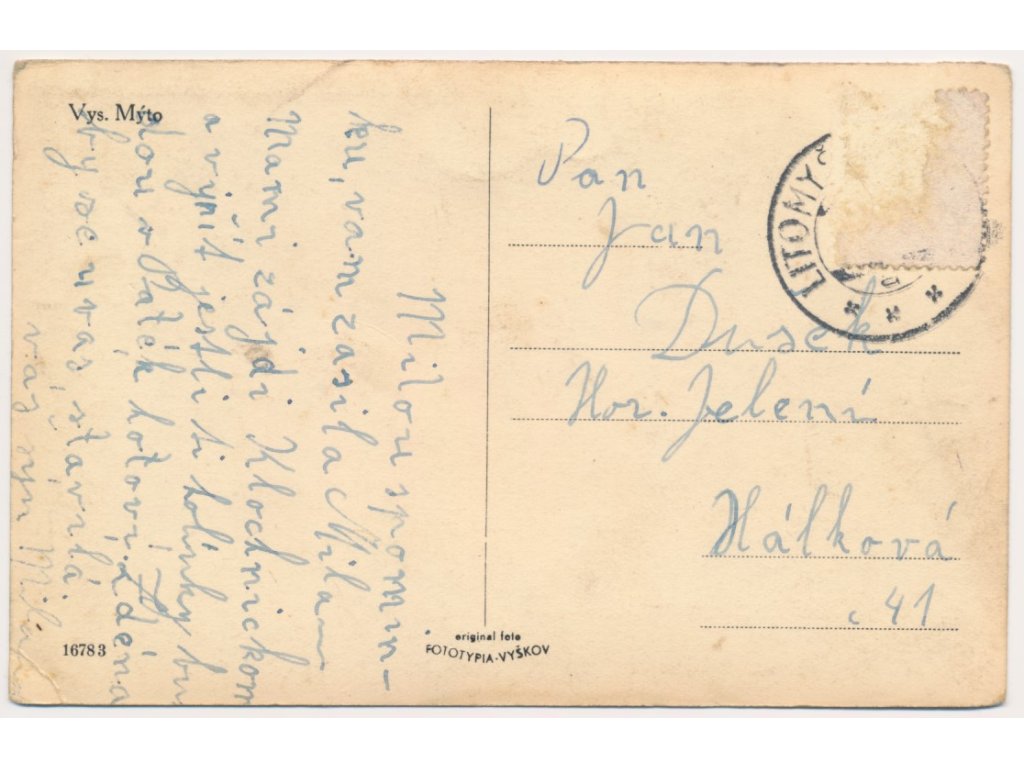 Vys. Mýto
Milou spomín-
ku, vám zasila Mila
Mami zájdi Klochnickom
a výjít jestli ti holínky bu
dou v Pátek hotoví. Zdena
by se u vás stavila
váš syn Mila
16783
original foto
FOTOTYPIA-VYŠKOV
Pan
Jan
Dusek
Hor. Jelení
Hálková
c 41
LITOMYŠ